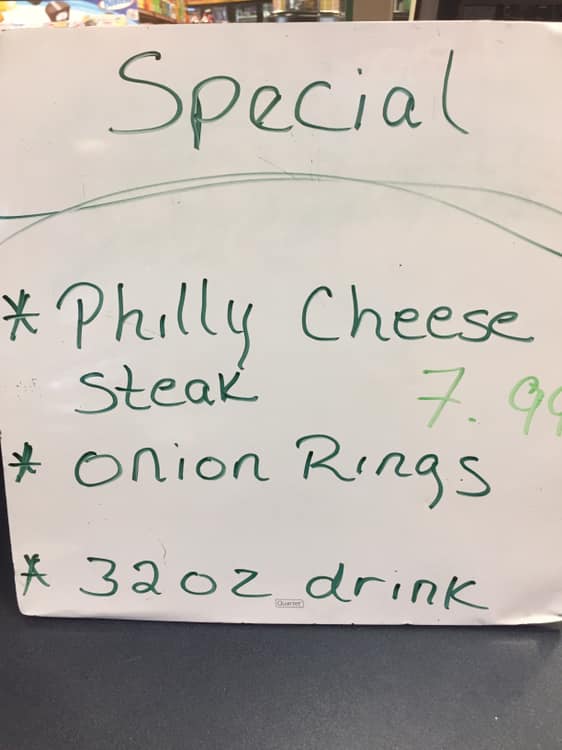 Special
* Philly Cheese
Steak 7.99
* Onion Rings
* 32oz drink
Quartet